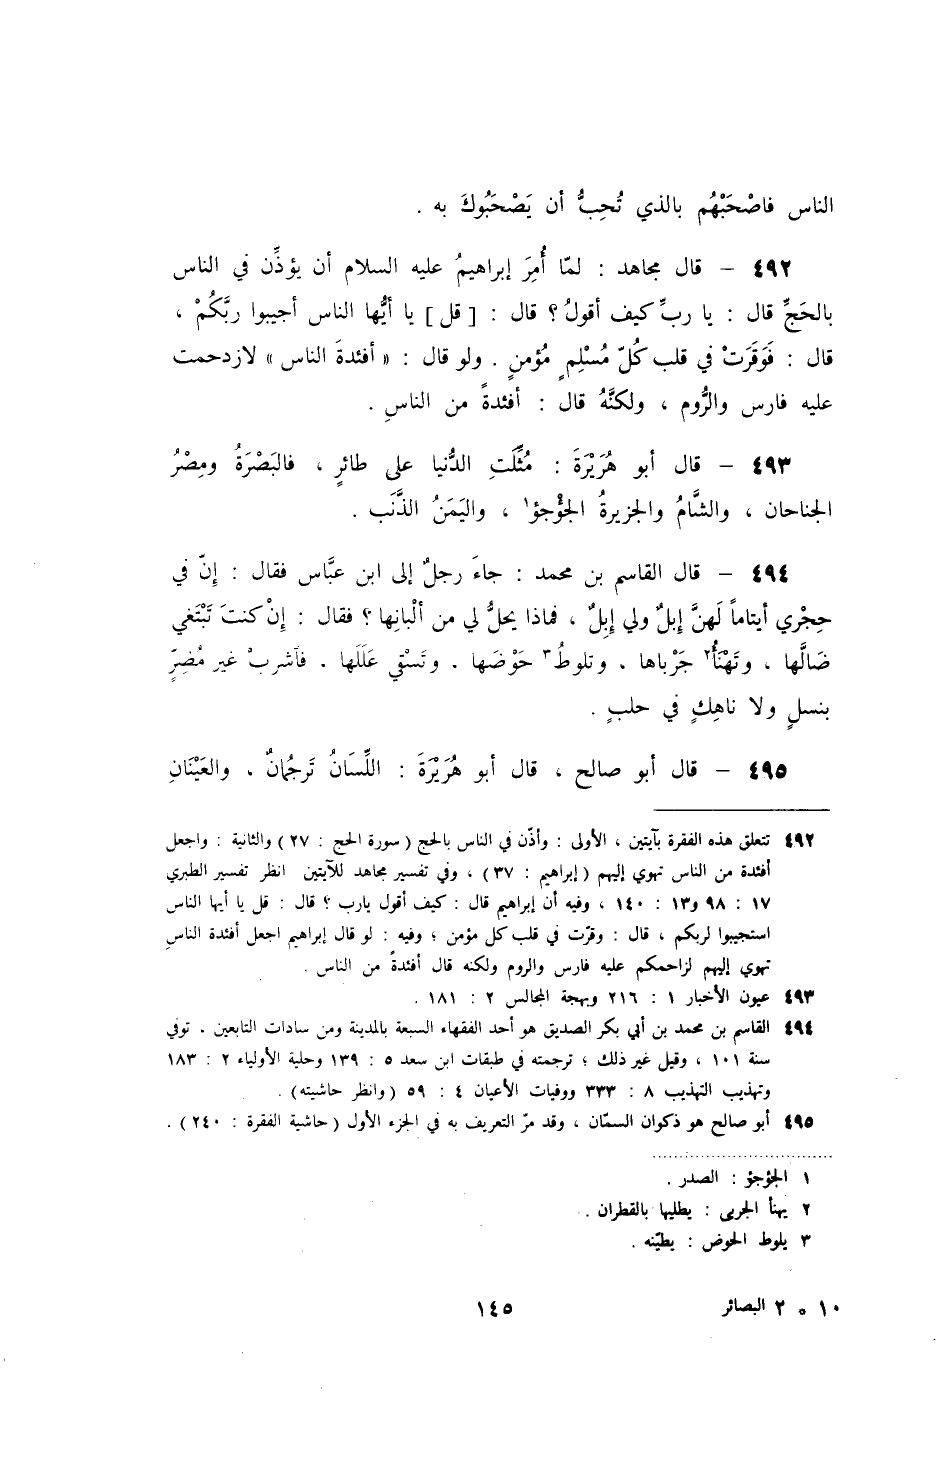 الناس فاصْحَبْهُم بالذي تُحِبُّ أن يَصْحَبُوكَ به .
٤٩٢ – قال مجاهد : لمّا أُمِرَ إبراهيمُ عليه السلام أن يؤذِّن في الناس
بالحَجِّ قال : يا ربِّ كيف أقولُ ؟ قال : [ قل ] يا أيُّها الناس أجيبوا ربَّكُمْ ،
قال : فَوَقَرَتْ في قلب كُلّ مُسْلِمٍ مُؤمنٍ . ولو قال : « أفئدةَ الناس » لازدحمت
عليه فارس والرُّوم ، ولكنَّهُ قال : أفئدةً من الناسِ .
٤٩٣ – قال أبو هُرَيْرَةَ : مُثِّلَتِ الدُّنيا على طائرٍ ، فالبَصْرَةُ ومِصْرُ
الجناحان ، والشَّامُ والجزيرةُ الجُؤْجؤ١ ، واليَمَنُ الذَّنَب .
٤٩٤ – قال القاسم بن محمد : جاءَ رجلٌ إلى ابن عبَّاس فقال : إنّ في
حِجْري أيتاماً لَهنَّ إبلٌ ولي إبلٌ ، فماذا يحلُّ لي من ألْبانِها ؟ فقال : إنْ كنتَ تَبْتَغي
ضَالَّها ، وتَهْنَأُ٢ جَرْباها . وتلوطُ٣ حَوْضَها . وتَسْقي عَلَلَها . فآشربْ غير مُضِرٍّ
بنسلٍ ولا ناهِكٍ في حلبٍ .
٤٩٥ – قال أبو صالح ، قال أبو هُرَيْرَةَ : اللِّسَانُ تَرجُمانٌ . والعَيْنَانِ
٤٩٢ تتعلق هذه الفقرة بآيتين ، الأولى : وأذّن في الناس بالحج ( سورة الحج : ٢٧ ) والثانية : واجعل
أفئدة من الناس تهوي إليهم ( إبراهيم : ٣٧ ) ، وفي تفسير مجاهد للآيتين انظر تفسير الطبري
١٧ : ٩٨ و١٣ : ١٤٠ ، وفيه أن إبراهيم قال : كيف أقول يارب ؟ قال : قل يا أيها الناس
استجيبوا لربكم ، قال : وقرّت في قلب كل مؤمن ؛ وفيه : لو قال إبراهيم اجعل أفئدة الناسِ
تهوي إليهم لزاحمكم عليه فارس والروم ولكنه قال أفئدةً من الناس .
٤٩٣ عيون الأخبار ١ : ٢١٦ وبهجة المجالس ٢ : ١٨١ .
٤٩٤ القاسم بن محمد بن أبي بكر الصديق هو أحد الفقهاء السبعة بالمدينة ومن سادات التابعين . توفي
سنة ١٠١ ، وقيل غير ذلك ؛ ترجمته في طبقات ابن سعد ٥ : ١٣٩ وحلية الأولياء ٢ : ١٨٣
وتهذيب التهذيب ٨ : ٣٣٣ ووفيات الأعيان ٤ : ٥٩ ( وانظر حاشيته ) .
٤٩٥ أبو صالح هو ذكوان السمّان ، وقد مرّ التعريف به في الجزء الأول ( حاشية الفقرة : ٢٤٠ ) .
١ الجؤجؤ : الصدر .
٢ يهنأ الجربى : يطليها بالقطران .
٣ يلوط الحوض : يطيّنه .
١٠ ه ٢ البصائر ١٤٥